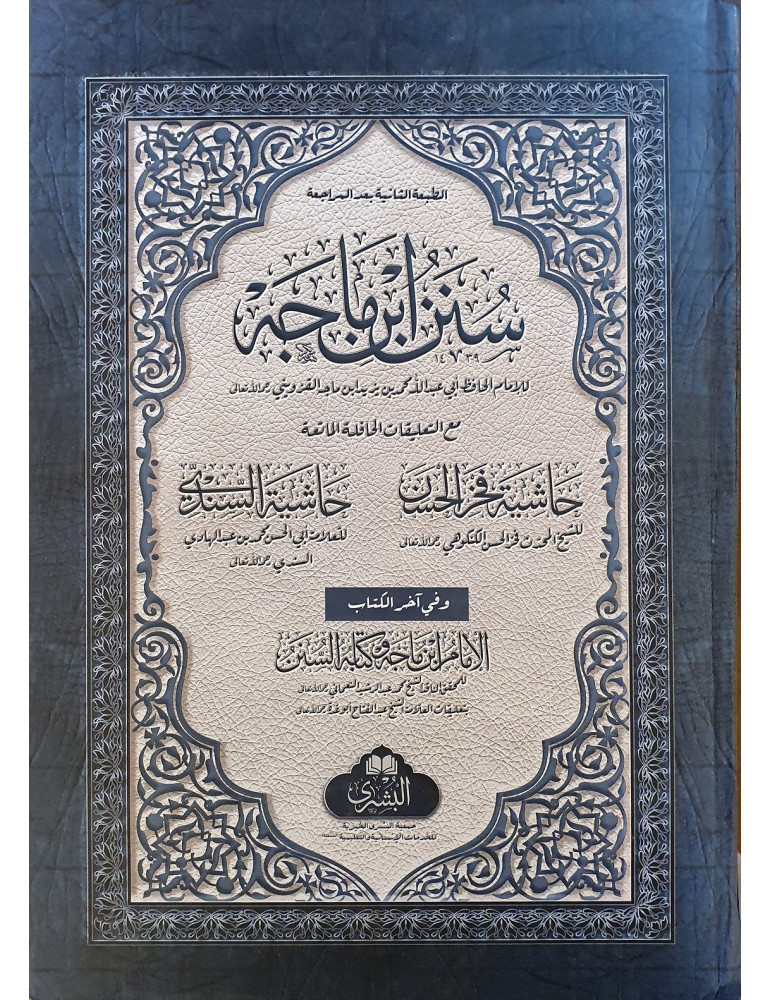 الطبعة الثانية بعد المراجعة
سُنَنُ ابْن مَاجَهْ
١٤٣٩
للإمام الحافظ أبي عبد الله محمد بن يزيد ابن ماجه القزويني رحمه الله تعالى
مع التعليقات الحافلة الماتعة
حاشية فخر الحسن
للشيخ المحدث فخر الحسن الكنكوهي رحمه الله تعالى
حاشية السندي
للعلامة أبي الحسن محمد بن عبد الهادي
السندي رحمه الله تعالى
وفي آخر الكتاب
الإمام ابن ماجه وكتابه السنن
للمحقق الناقد الشيخ محمد عبد الرشيد النعماني رحمه الله تعالى
بتعليقات العلامة الشيخ عبد الفتاح أبو غدة رحمه الله تعالى
البشرى
جمعية البشرى الخيرية
للخدمات الإنسانية والتعليمية